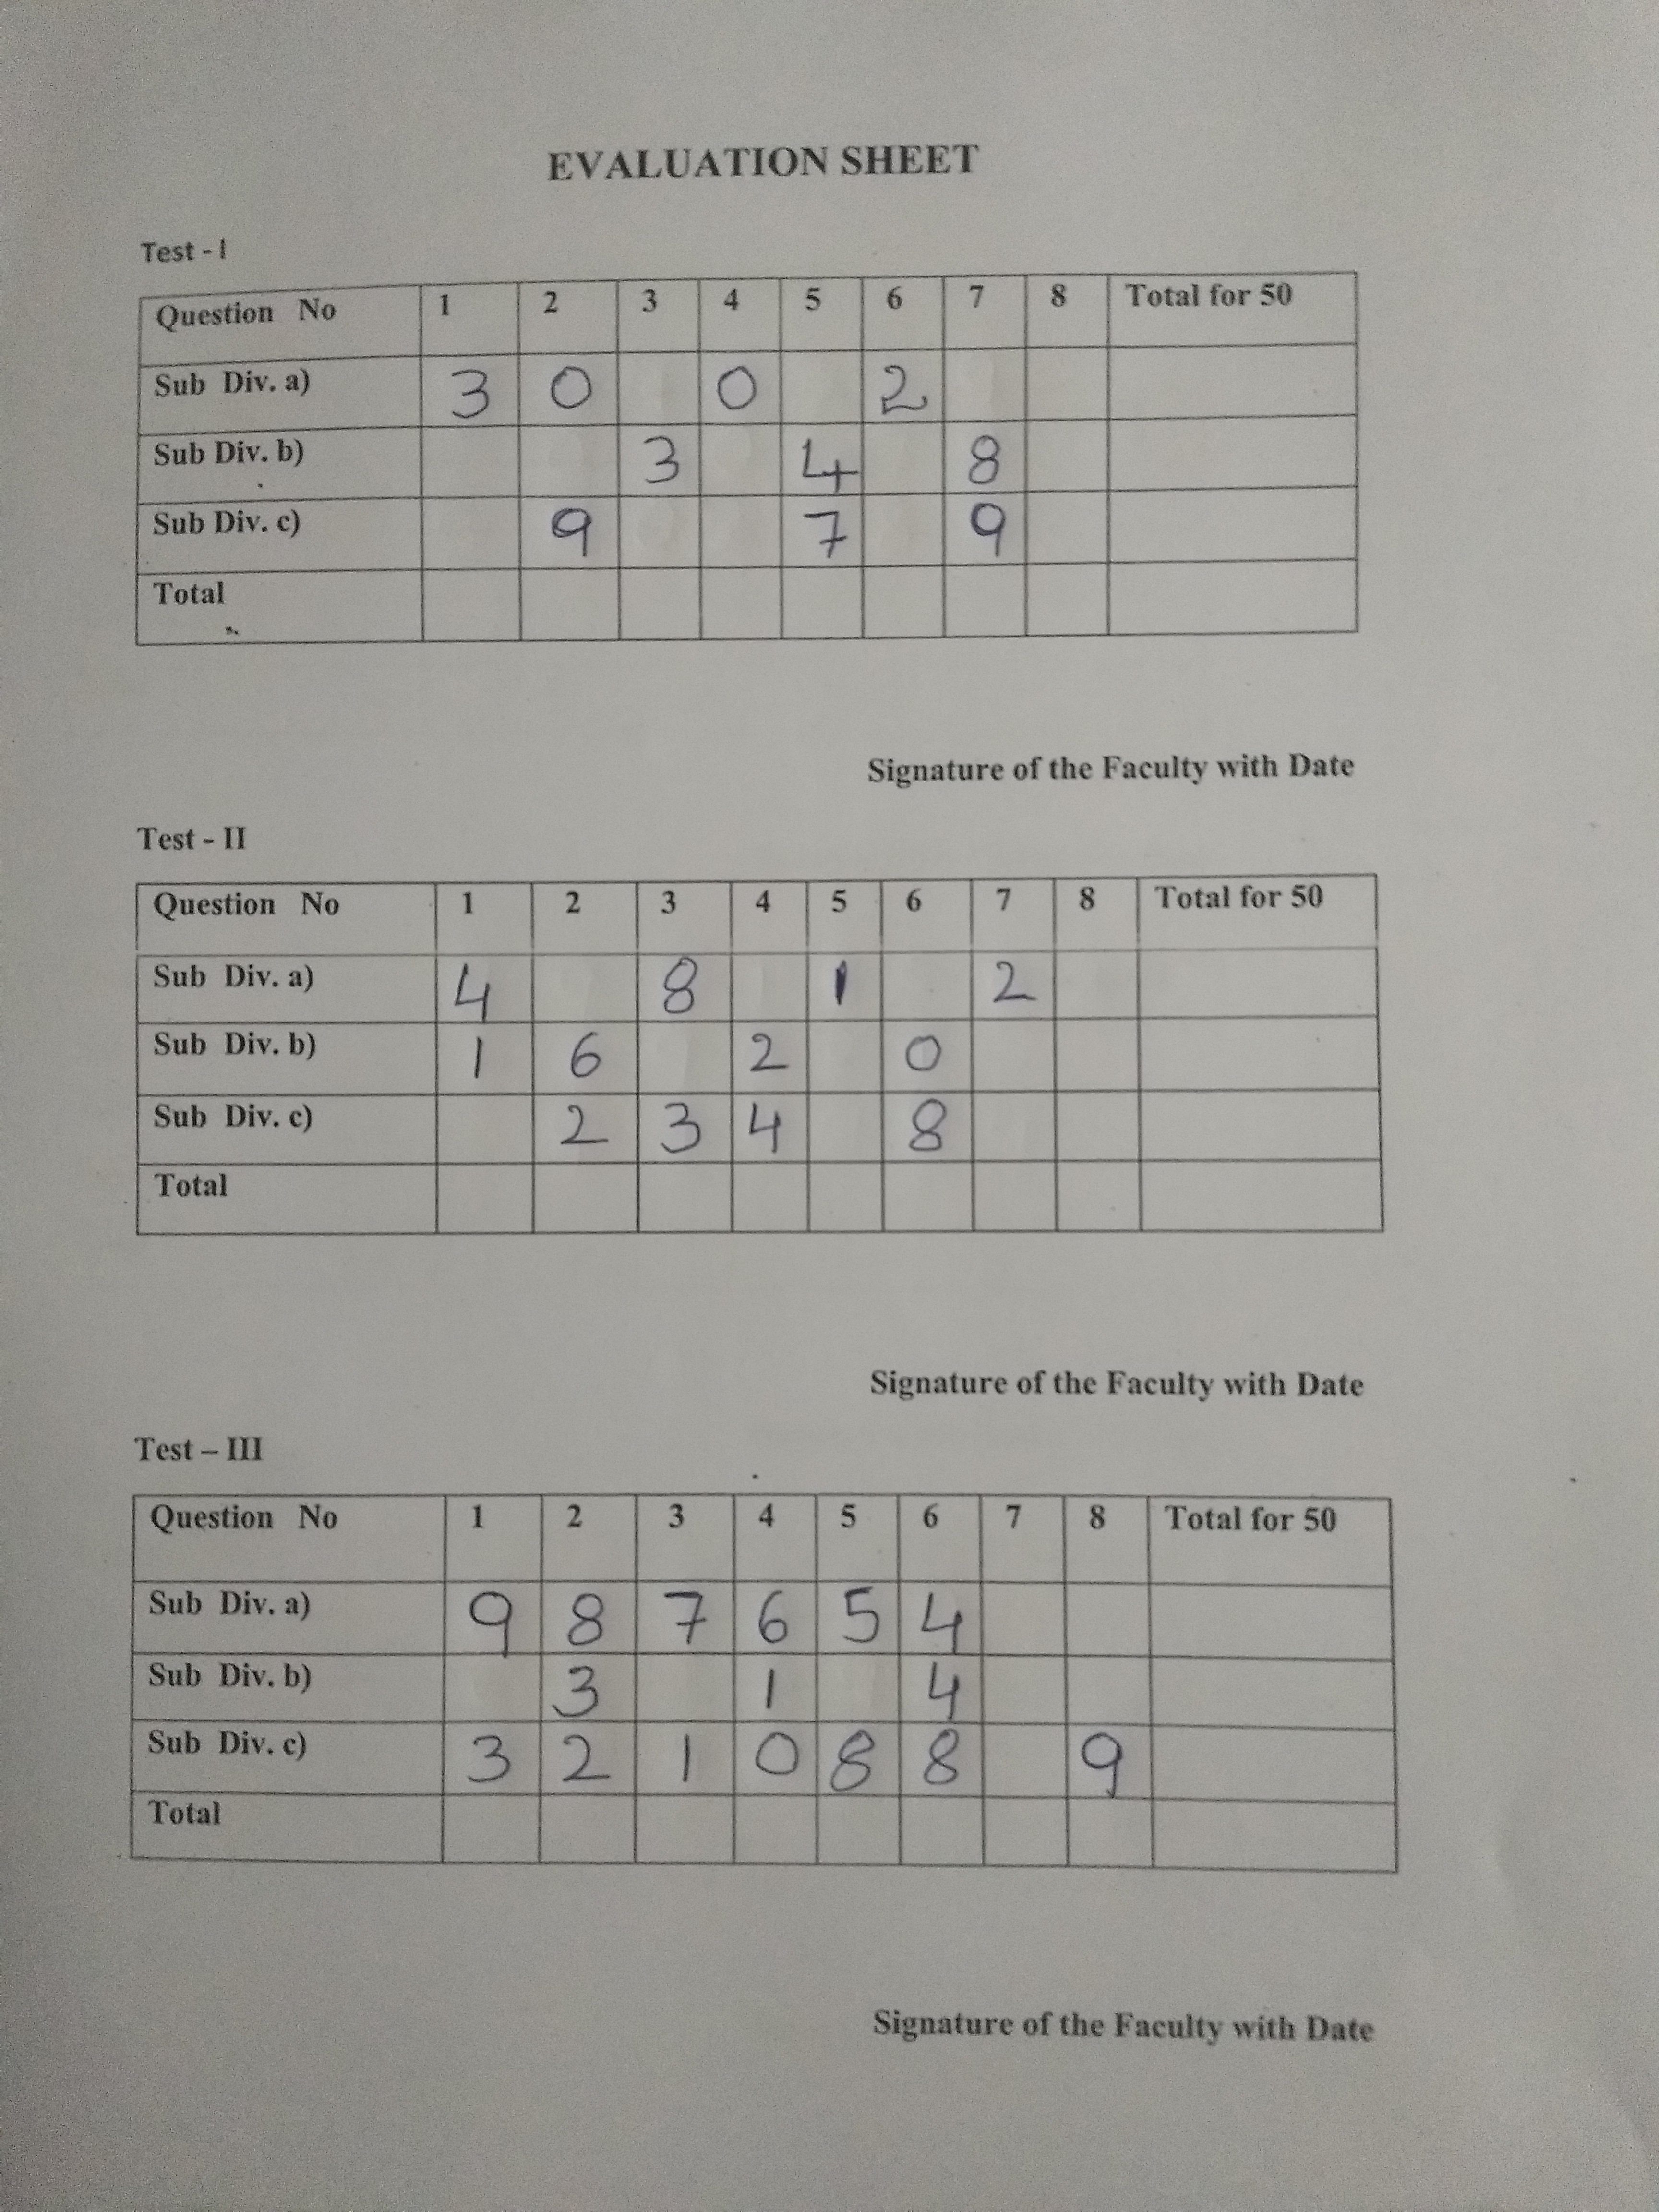 EVALUATION SHEET
Test - I
Question No 1 2 3 4 5 6 7 8 Total for 50
Sub Div. a) 3 0 0 2
Sub Div. b) 3 4 8
Sub Div. c) 9 7 9
Total
Signature of the Faculty with Date
Test - II
Question No 1 2 3 4 5 6 7 8 Total for 50
Sub Div. a) 4 8 1 2
Sub Div. b) 1 6 2 0
Sub Div. c) 2 3 4 8
Total
Signature of the Faculty with Date
Test – III
Question No 1 2 3 4 5 6 7 8 Total for 50
Sub Div. a) 9 8 7 6 5 4
Sub Div. b) 3 1 4
Sub Div. c) 3 2 1 0 8 8 9
Total
Signature of the Faculty with Date